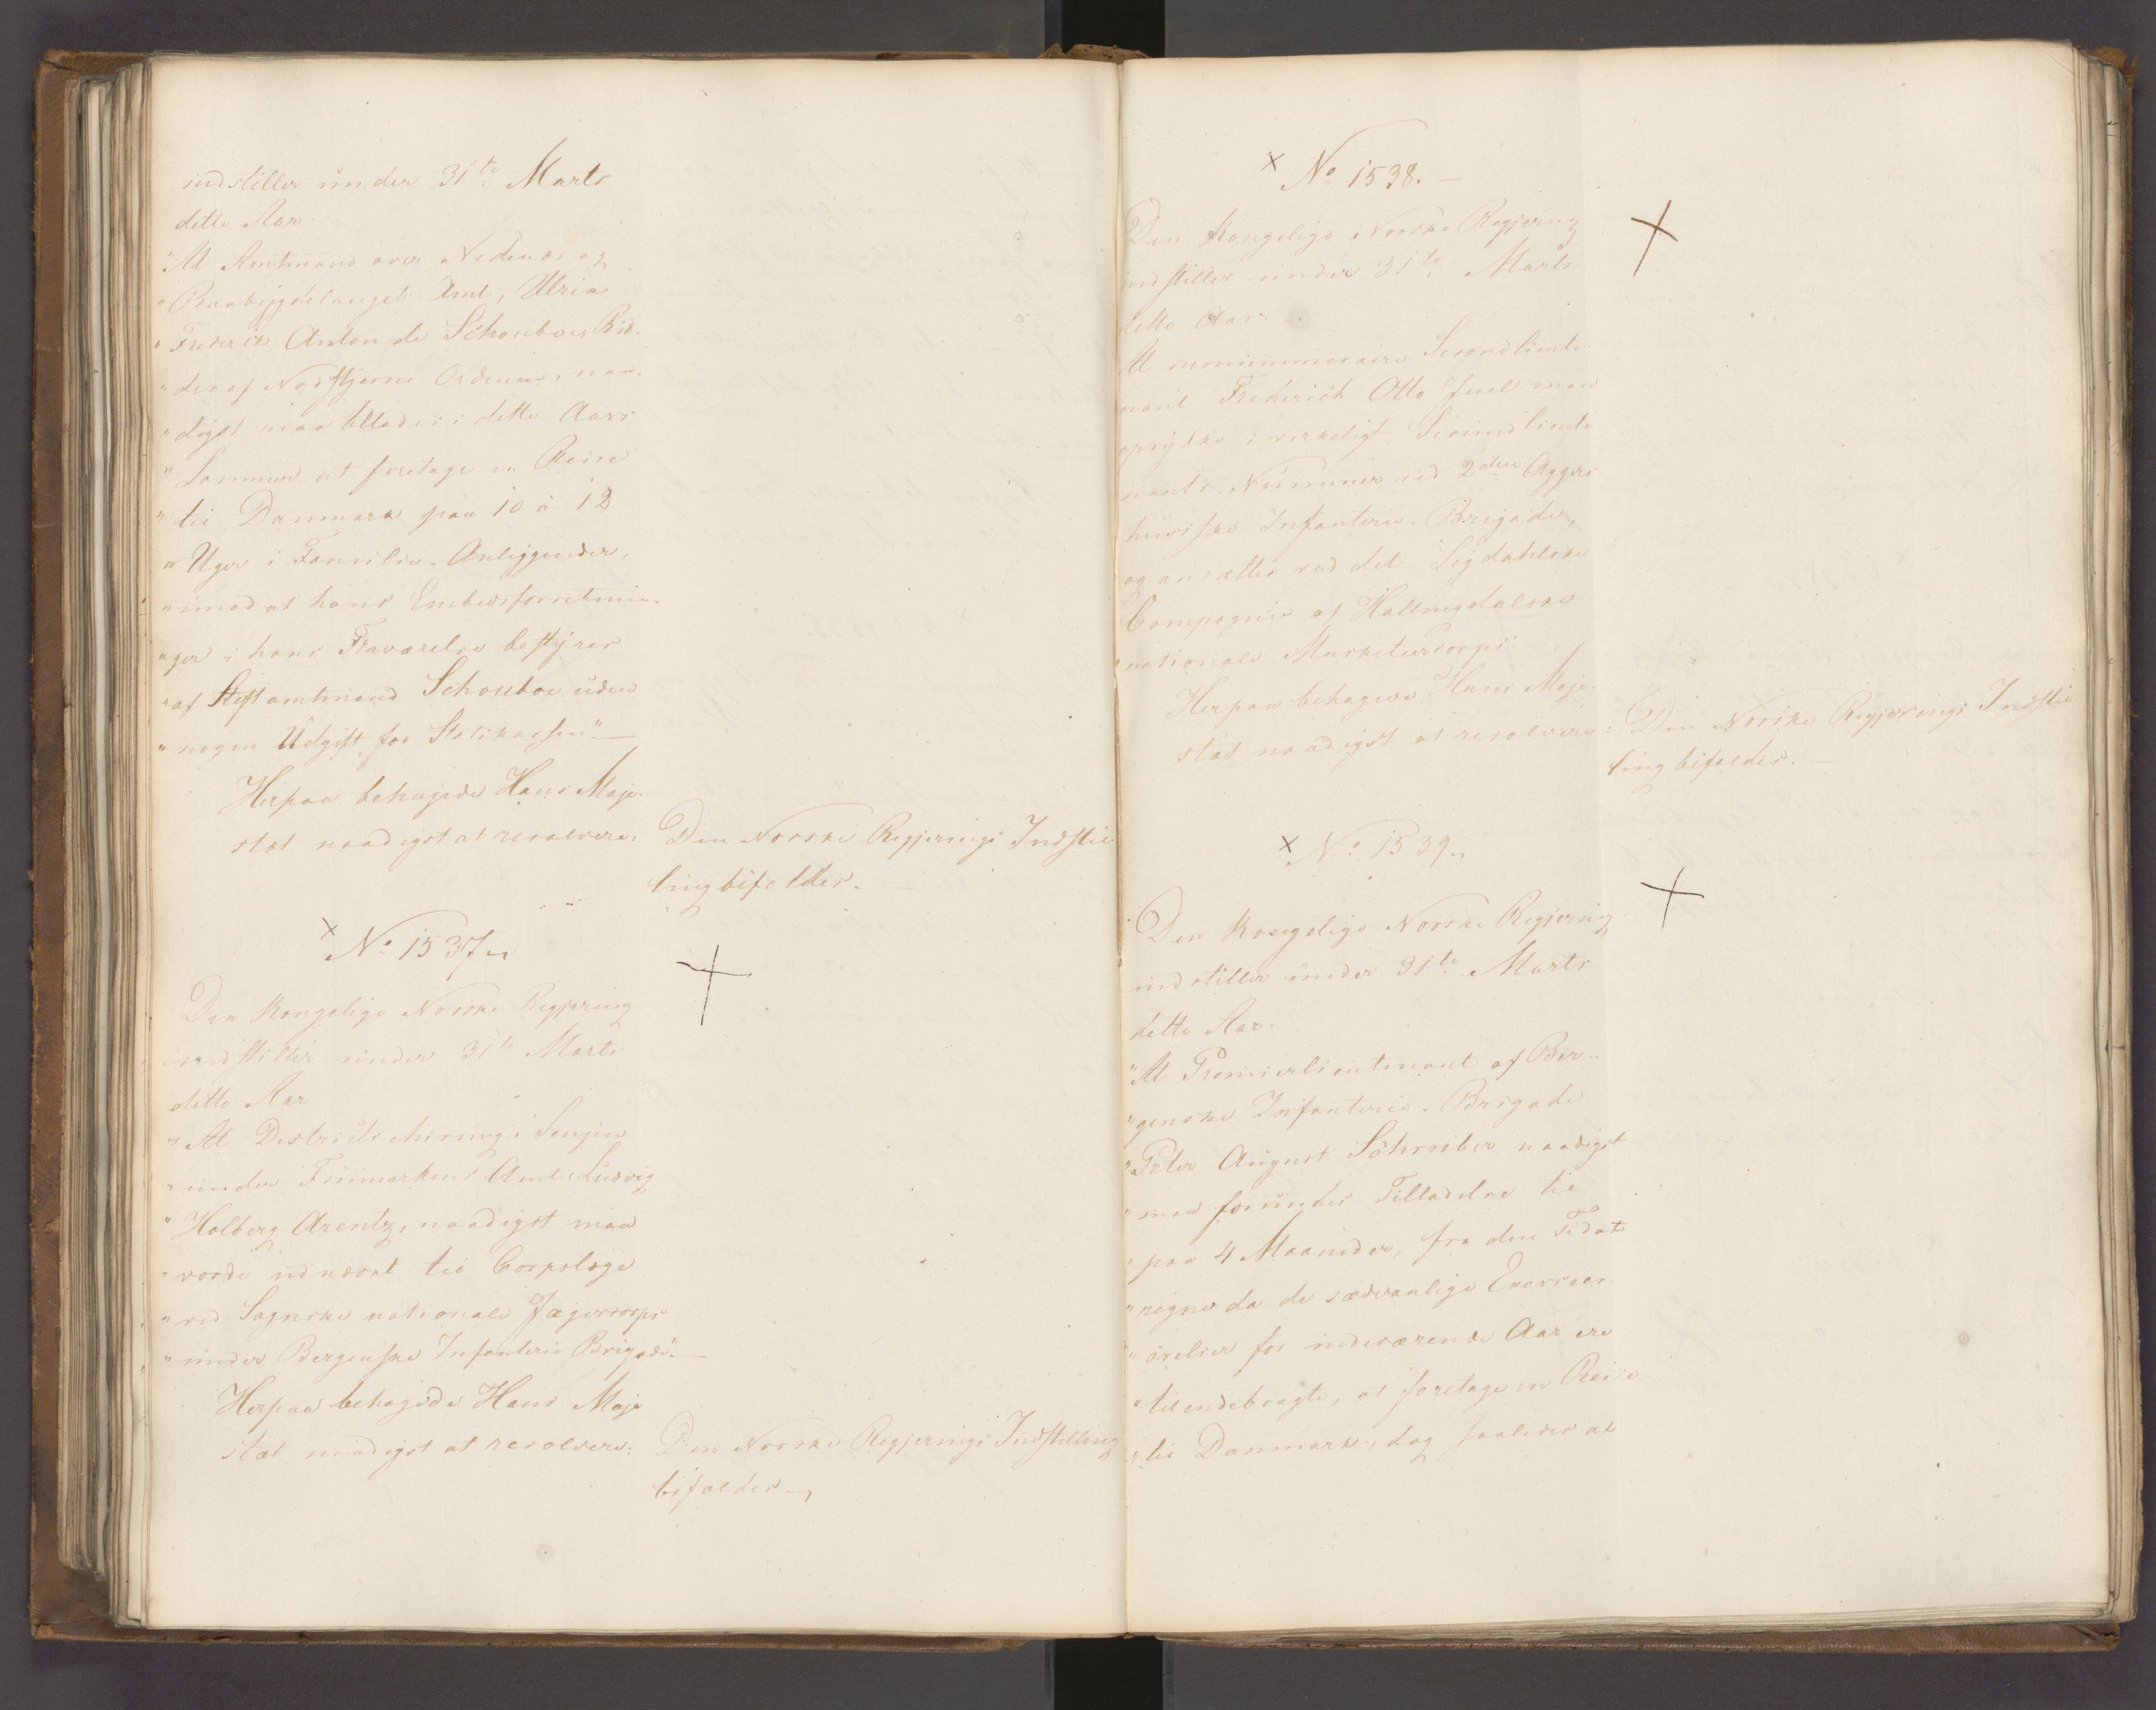 indstiller under 31te Marts
dette Aar
"At Amtmand over Nedenæs og
"Raabygdelauget Amt, Ulrik
"Frederik Anton de Schouboe, Rid-
"der af Nordstjerne Ordenen, naa-
"digst maa tillades i dette Aars
"Sommer at foretage en Reise
"til Danmark paa 10 à 12
"Uger i Familie-Anliggender,
"imod at hans Embedsforretnin-
"ger i hans Fraværelse bestyres
"af Stiftamtmand Schouboe uden
"nogen Udgift for Statskassen"
Herpaa behagede Hans Maje-
stæt naadigst at resolvere:
Den Norske Regjerings Indstil
ling bifaldes.
x No 1537
Den Kongelige Norske Regjering
indstiller under 31te Marts
dette Aar
"At Districtschirurg i Senjen
"under Finmarkens Amt Ludvig
"Holberg Arentz, naadigst maa
"vorde udnævnt til Corpslæge
"ved Sognske nationale Jægercorps
"under Bergenske Infanterie Brigade".
Herpaa behagede Hans Maje
stæt naadigst at resolvere:
Den Norske Regjerings Indstilling
bifaldes
x No 1538.
Den Kongelige Norske Regjering
indstiller under 31te Marts
dette Aar.
At surnummeraire Secondlieute-
nant Frederich Otto Juel maa
oprykke i virkeligt Secondlieute
nants Nummer ved 2den Aggers
huusiske Infanterie-Brigade,
og ansættes ved det Sigdahlske
Compagnie af Hallingdalske
nationale Musketeercorps.
Herpaa behagede Hans Maje-
stæt naadigst at resolvere:
Den Norske Regjerings Indstil
ling bifaldes.
x No 1539
Den Kongelige Norske Regjering
indstiller under 31te Marts
dette Aar.
"At Premierlieutenant af Ber-
"genske Infanterie-Brigade
"Peter August Schreiber naadigst
"maa forundes Tilladelse til
"paa 4 Maaneder, fra den Tid at
"regne da de sædvanlige Exerceer-
"øvelser for indeværende Aar ere
"tilendebragte, at foretage en Reise
"til Danmark, dog saaledes at